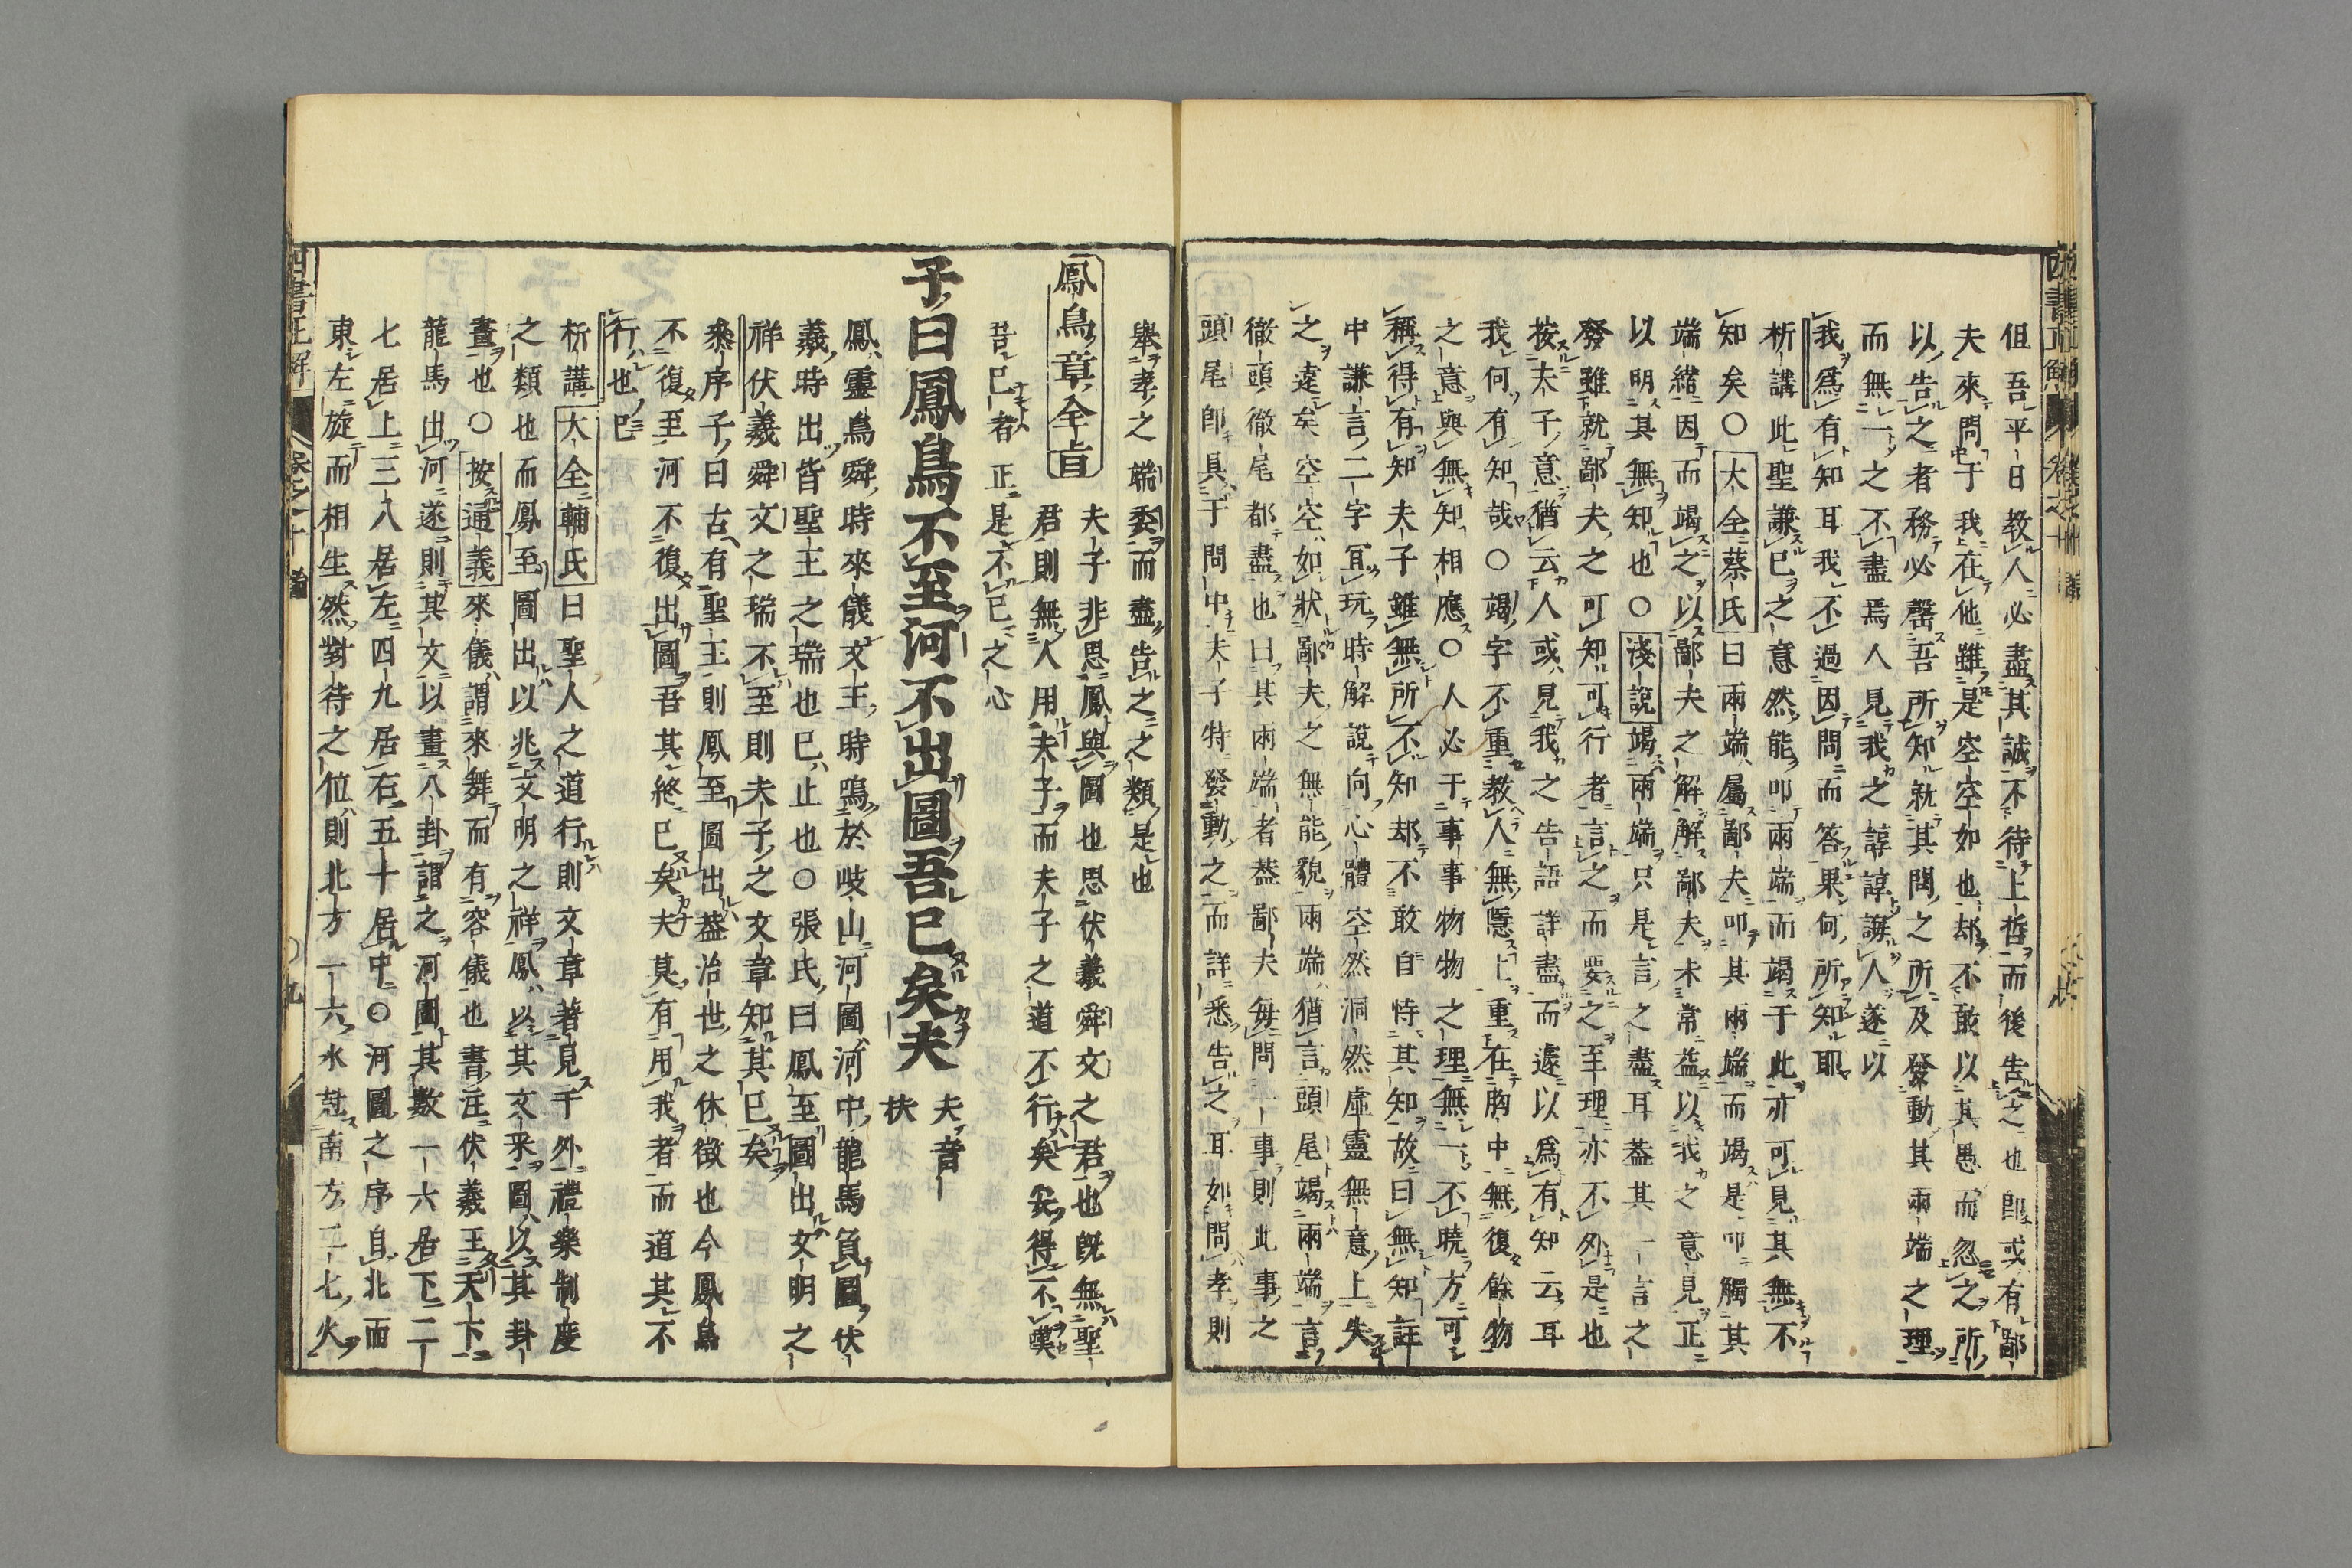 但吾平日教人必盡其誠不待上哲而後告之也即或有鄙
夫來問于我在他雖是空空如也却不敢以其愚而忽之所
以告之者務必罄吾所知就其問之所及發動其兩端之理
而無一之不盡焉人見我之諄諄誨人遂以
我爲有知耳我不過因問而答果何所知耶
析講此聖謙已之意然能叩兩端而竭于此亦可見其無不
知矣〇大全蔡氏曰兩端屬鄙夫叩其兩端而竭是叩觸其
端緒因而竭之以鄙夫之解解鄙夫未常益以我之意見正
以明其無知也〇淺說竭兩端只是言之盡耳葢其一言之
發雖就鄙夫之可知可行者言之而要之至理亦不外是也
按夫子意猶云人或見我之告語詳盡而遂以爲有知云耳
我何有知哉〇竭字不重教人無隱上重在胸中無復餘物
之意與無知相應〇人必于事事物物之理無一不曉方可
稱得有知夫子雖無所不知却不敢自恃其知故曰無知註
中謙言二字冝玩時解說向心體空然洞然虛靈無意上失
之遠矣空空如狀鄙夫之無能貌兩端猶言頭尾竭兩端言
徹頭徹尾都盡也曰其兩端者葢鄙夫每問一事則此事之
頭尾即具于問中夫子特發動之而詳悉告之耳如問孝則
舉孝之端委而盡告之之類是也
鳳鳥章全旨
夫子非思鳳與圖也思伏羲舜文之君也既無聖
君則無人用夫子而夫子之道不行矣安得不嘆
吾已者正是不已之心
子曰鳳鳥不至河不出圖吾已矣夫
夫音
扶
鳳靈鳥舜時來儀文王時鳴於岐山河圖河中龍馬負圖伏
羲時出皆聖王之瑞也已止也〇張氏曰鳳至圖出文明之
祥伏羲舜文之瑞不至則夫子之文章知其已矣
叅序子曰古有聖王則鳳至圖出葢治世之休徵也今鳳鳥
不復至河不復出圖吾其終已矣夫莫有用我者而道其不
行也已
析講大全輔氏曰聖人之道行則文章著見于外禮樂制度
之類也而鳳至圖出以兆文明之祥鳳以其文采圖以其卦
畫也〇按通義來儀謂來舞而有容儀也書注伏羲王天下
龍馬出河遂則其文以畫八卦謂之河圖其數一六居下二
七居上三八居左四九居右五十居中〇河圖之序自北而
東左旋而相生然對待之位則北方一六水尅南方二七火